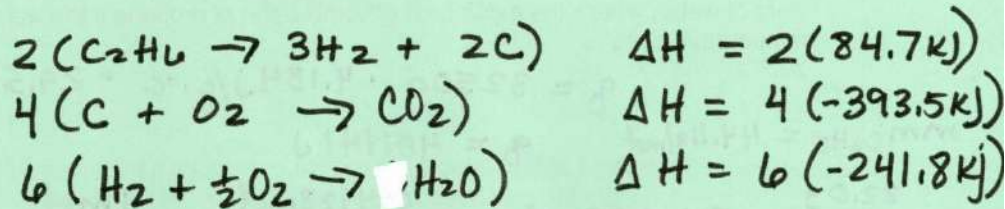 2 (C2H6 → 3H2 + 2C) ΔH = 2(84.7kJ)
4 (C + O2 → CO2) ΔH = 4(-393.5kJ)
6 (H2 + ½O2 → H2O) ΔH = 6(-241.8kJ)